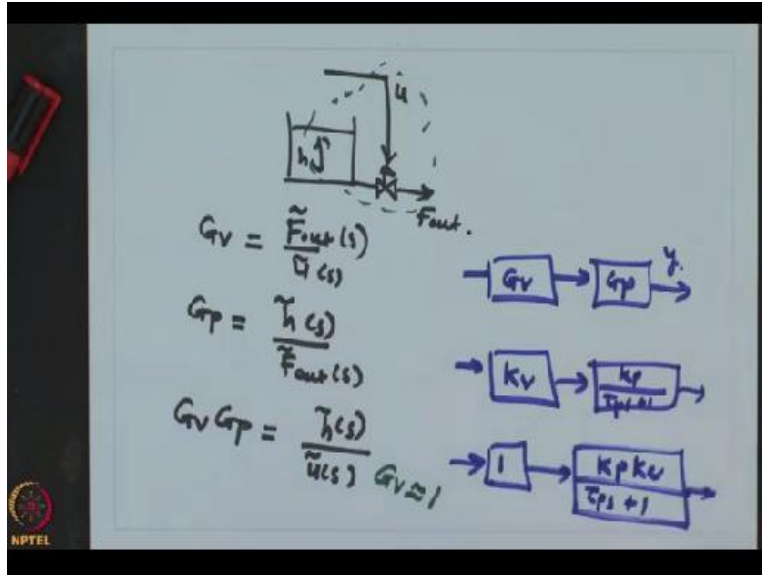 u
h
Fout.
Gv = F̃out(s) / ũ(s)
Gp = h̃(s) / F̃out(s)
GvGp = h̃(s) / ũ(s)
Gv ≈ 1
Gv Gp y.
Kv Kp / τps+1
1 KpKv / τps + 1
NPTEL